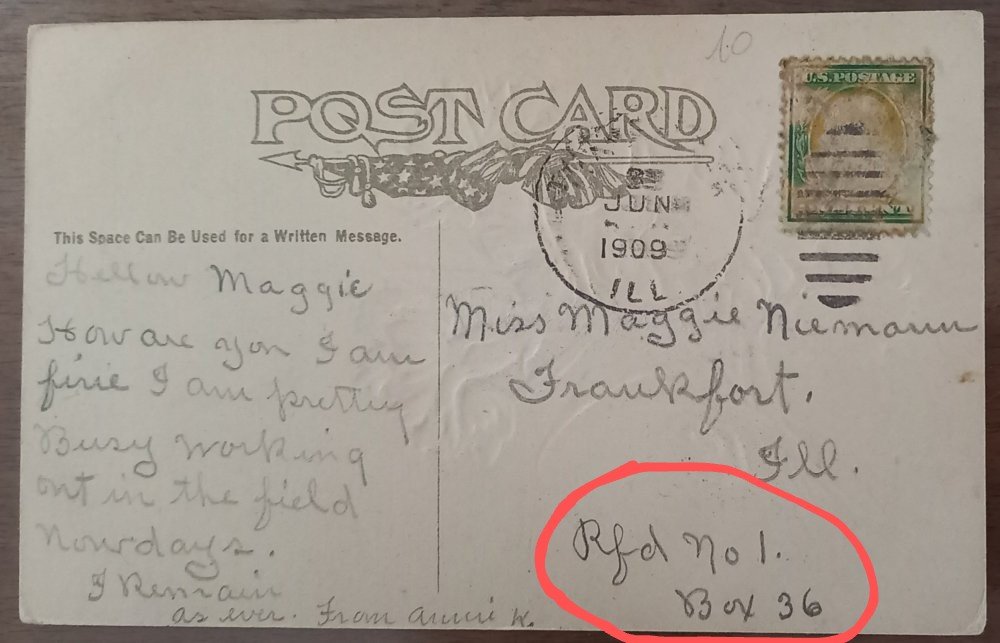 10
POST CARD
U.S. POSTAGE
JUN
1909
ILL
This Space Can Be Used for a Written Message.
Hellow Maggie
How are you I am
fine I am pretty
Busy working
out in the field
Nowdays.
I Remain
as ever. From Annie K.
Miss Maggie Niemann
Frankfort.
Ill.
Rfd No 1.
Box 36